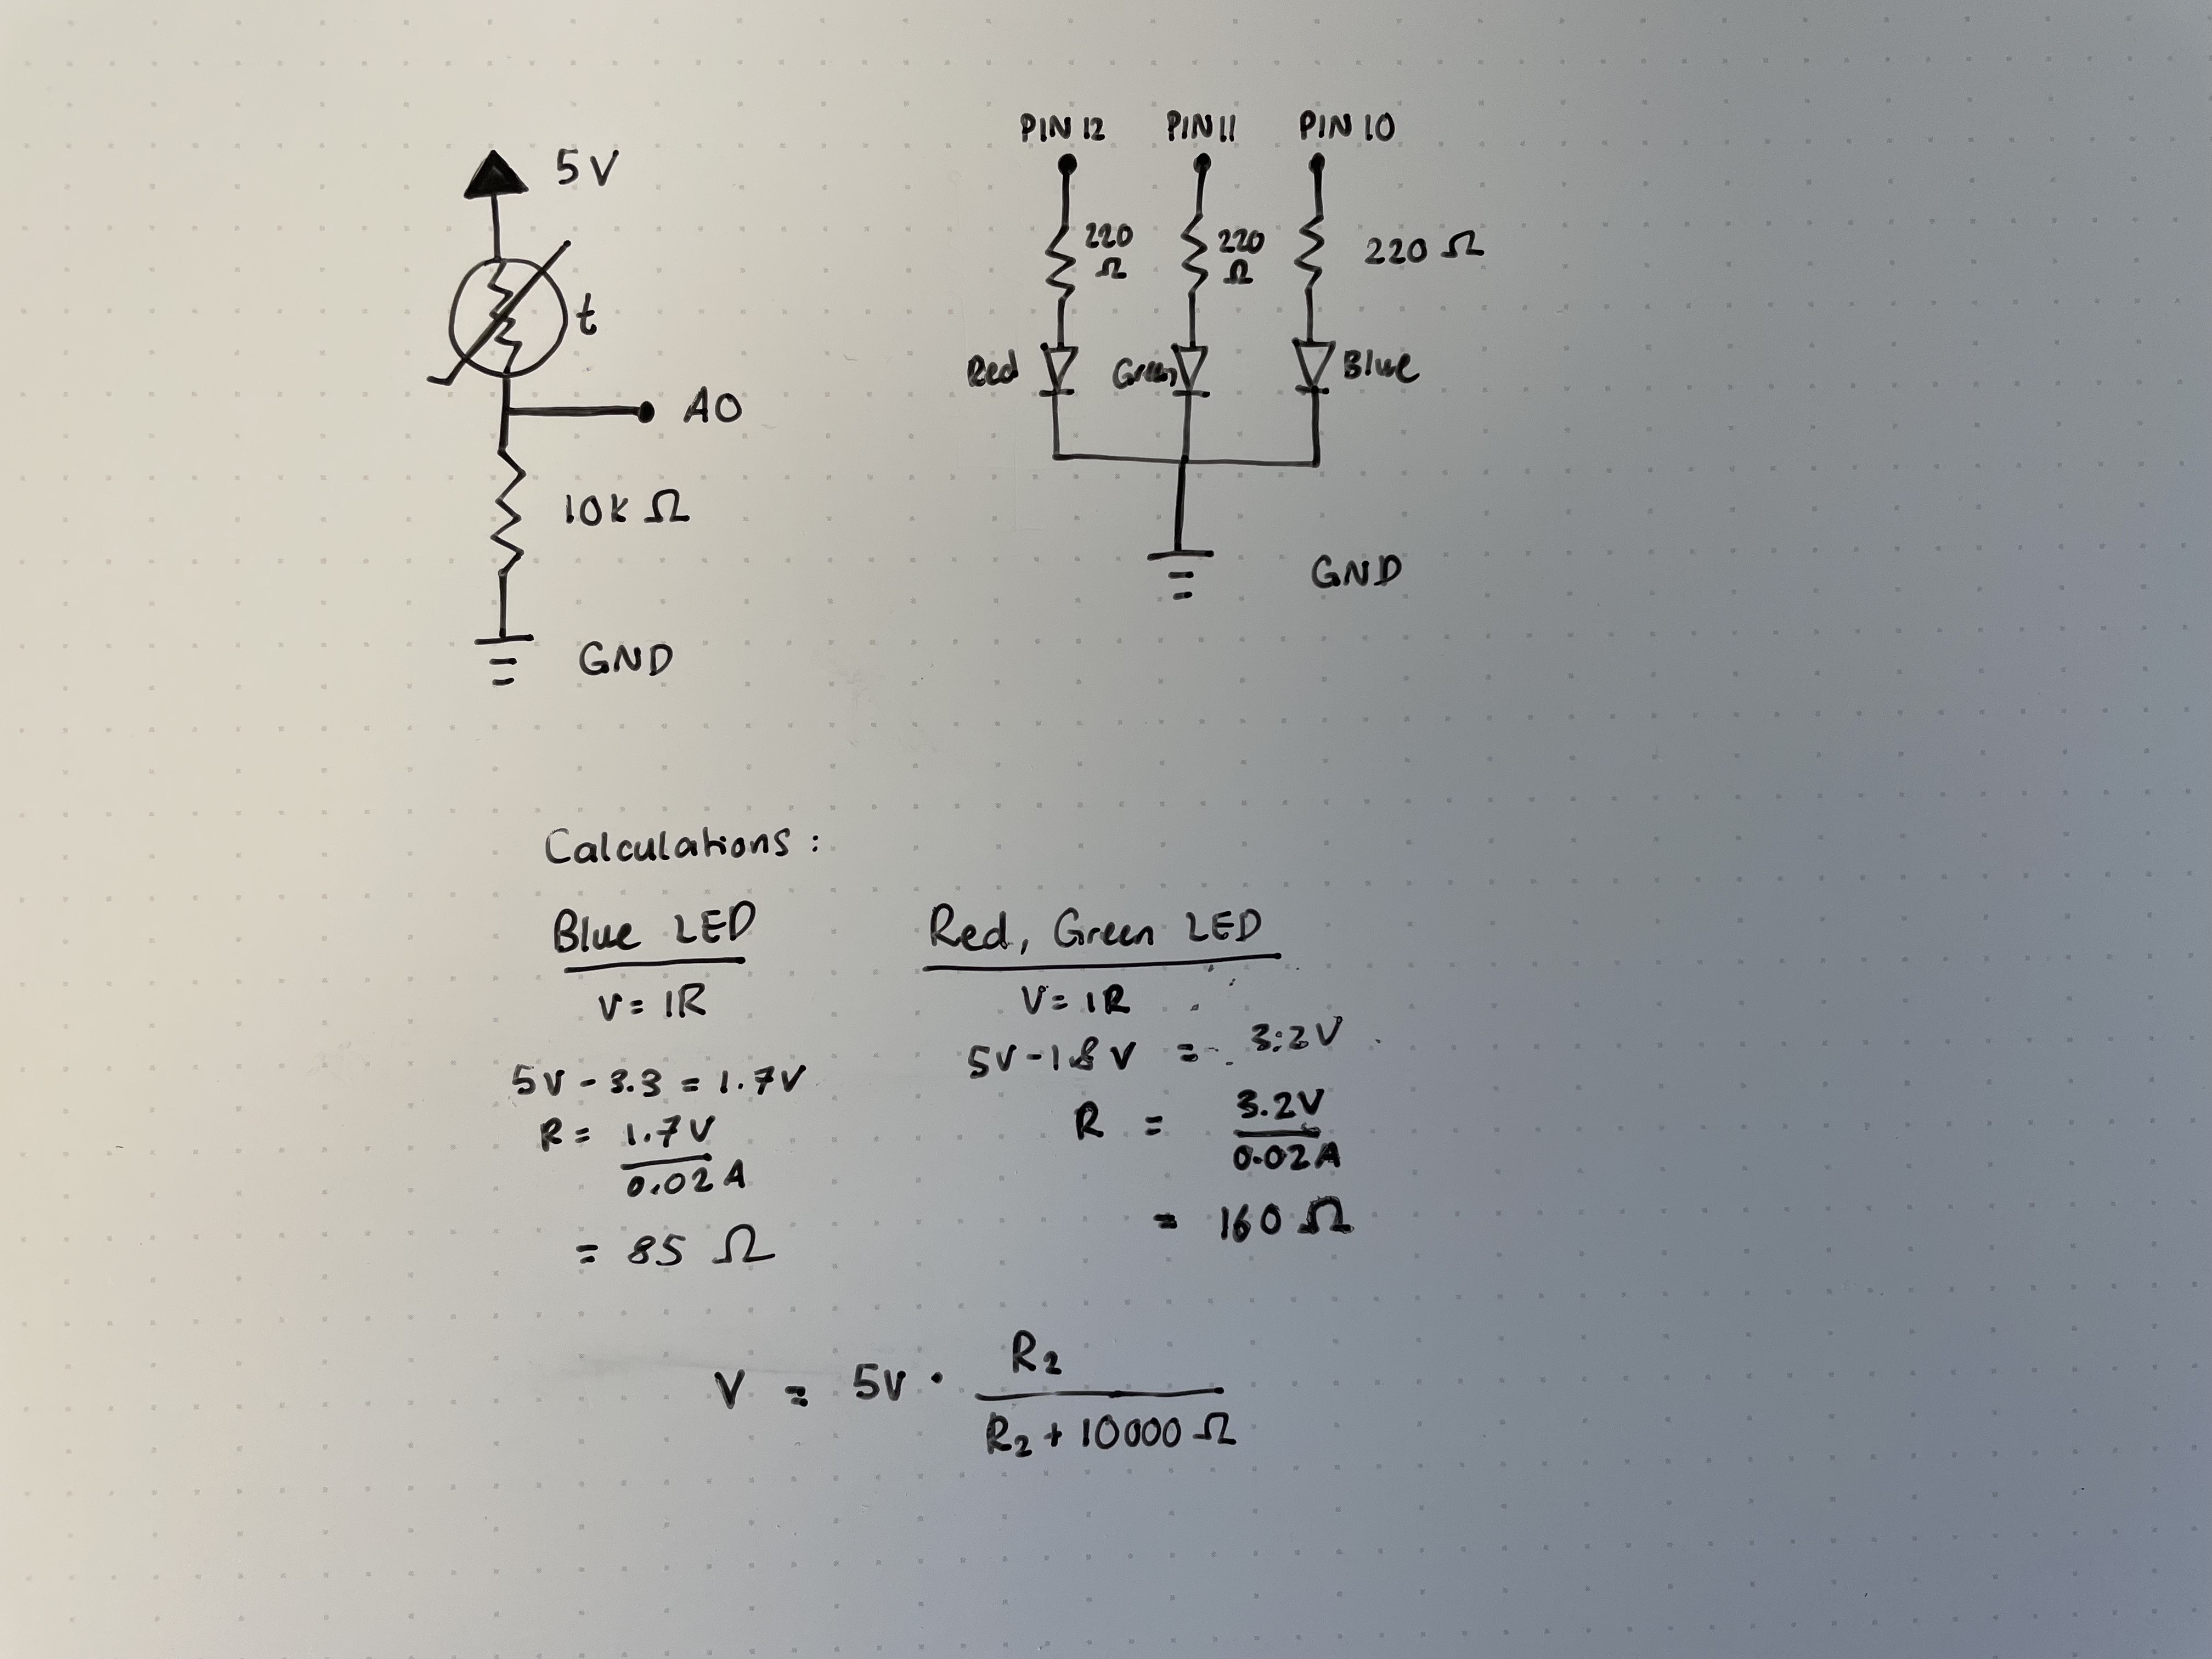 5V
t
A0
10k Ω
GND
PIN 12 PIN 11 PIN 10
220 Ω
220 Ω
220 Ω
Red Green Blue
GND
Calculations:
Blue LED
V = IR
5V - 3.3 = 1.7V
R = 1.7V / 0.02A
= 85 Ω
Red, Green LED
V = IR
5V - 1.8V = 3.2V
R = 3.2V / 0.02A
= 160 Ω
V = 5V · R₂ / R₂ + 10000 Ω